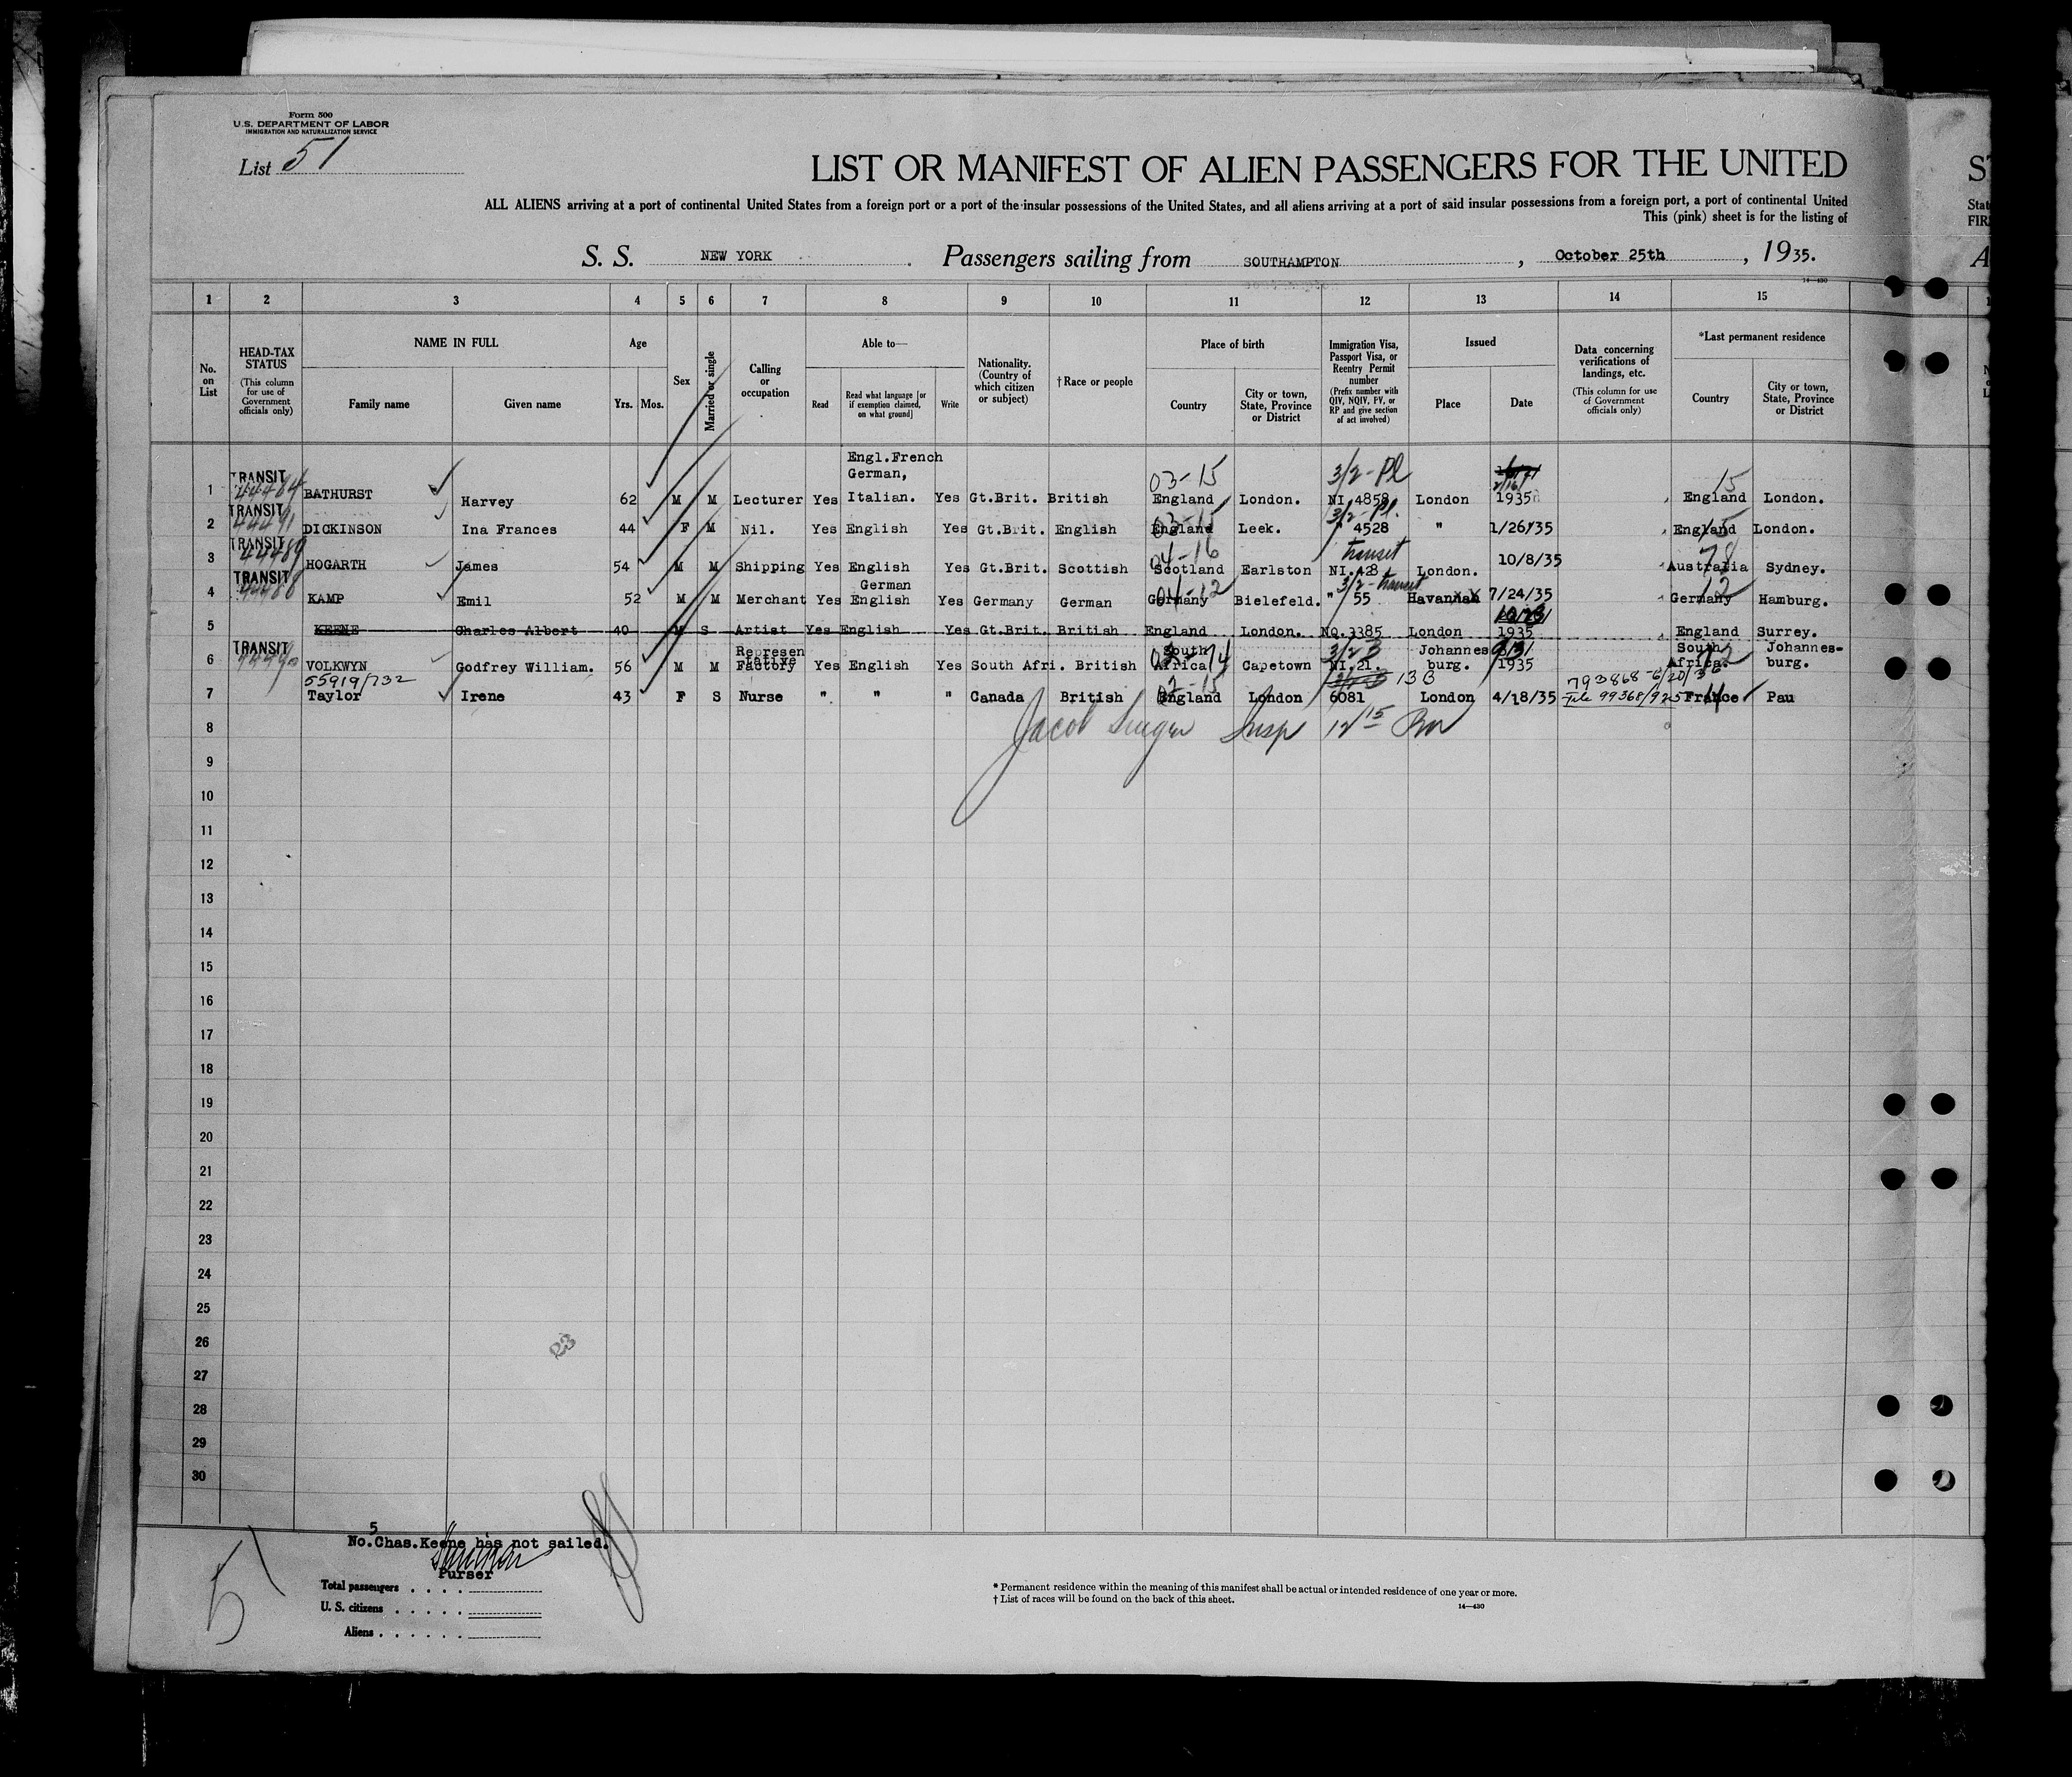 Form 500
U.S. DEPARTMENT OF LABOR
IMMIGRATION AND NATURALIZATION SERVICE
List 51
LIST OR MANIFEST OF ALIEN PASSENGERS FOR THE UNITED
ST
ALL ALIENS arriving at a port of continental United States from a foreign port or a port of the insular possessions of the United States, and all aliens arriving at a port of said insular possessions from a foreign port, a port of continental United
Stat
This (pink) sheet is for the listing of
FIR
S. S. NEW YORK. Passengers sailing from SOUTHAMPTON, October 25th, 1935.
A
14—430
1 2 3 4 5 6 7 8 9 10 11 12 13 14 15
No. on List
HEAD-TAX STATUS (This column for use of Government officials only)
NAME IN FULL
Family name Given name
Age
Yrs. Mos.
Sex
Married or single
Calling or occupation
Able to—
Read Read what language [or if exemption claimed, on what ground] Write
Nationality. (Country of which citizen or subject)
†Race or people
Place of birth
Country City or town, State, Province or District
Immigration Visa, Passport Visa, or Reentry Permit number (Prefix number with QIV, NQIV, PV, or RP and give section of act involved)
Issued
Place Date
Data concerning verifications of landings, etc. (This column for use of Government officials only)
*Last permanent residence
Country City or town, State, Province or District
Engl.French
TRANSIT German, 03-15 3/2-Pl 15
1 44484 BATHURST Harvey 62 M M Lecturer Yes Italian. Yes Gt.Brit. British England London. NI 4858 London 1935 England London.
TRANSIT 03-15 3/2-Pl. 15
2 44491 DICKINSON Ina Frances 44 F M Nil. Yes English Yes Gt.Brit. English England Leek. " 4528 " 1/26/35 England London.
TRANSIT 04-16 transit 78
3 44489 HOGARTH James 54 M M Shipping Yes English Yes Gt.Brit. Scottish Scotland Earlston NI.428 London. 10/8/35 Australia Sydney.
TRANSIT German 04-12 3/2-transit 12
4 44488 KAMP Emil 52 M M Merchant Yes English Yes Germany German Germany Bielefeld. " 55 Havannah 7/24/35 Germany Hamburg.
5 KEENE Charles Albert 40 M S Artist Yes English Yes Gt.Brit. British England London. NO.3385 London 1935 England Surrey.
TRANSIT Represen tative South 3/2 B Johannes South Johannes-
6 VOLKWYN Godfrey William. 56 M M Factory Yes English Yes South Afri. British Africa Capetown NI.21. burg. 1935 Africa. burg.
55919/732 02-15 13B 793868-6/20/36
7 Taylor Irene 43 F S Nurse " " " Canada British England London 6081 London 4/18/35 File 99368/925 France Pau
8 Jacob Insp 12 15
9
10
11
12
13
14
15
16
17
18
19
20
21
22
23
24
25
26
27
28
29
30
23
5
No.Chas.Keene has not sailed.
Purser
51
Total passengers
U. S. citizens
Aliens
* Permanent residence within the meaning of this manifest shall be actual or intended residence of one year or more.
† List of races will be found on the back of this sheet.
14—430